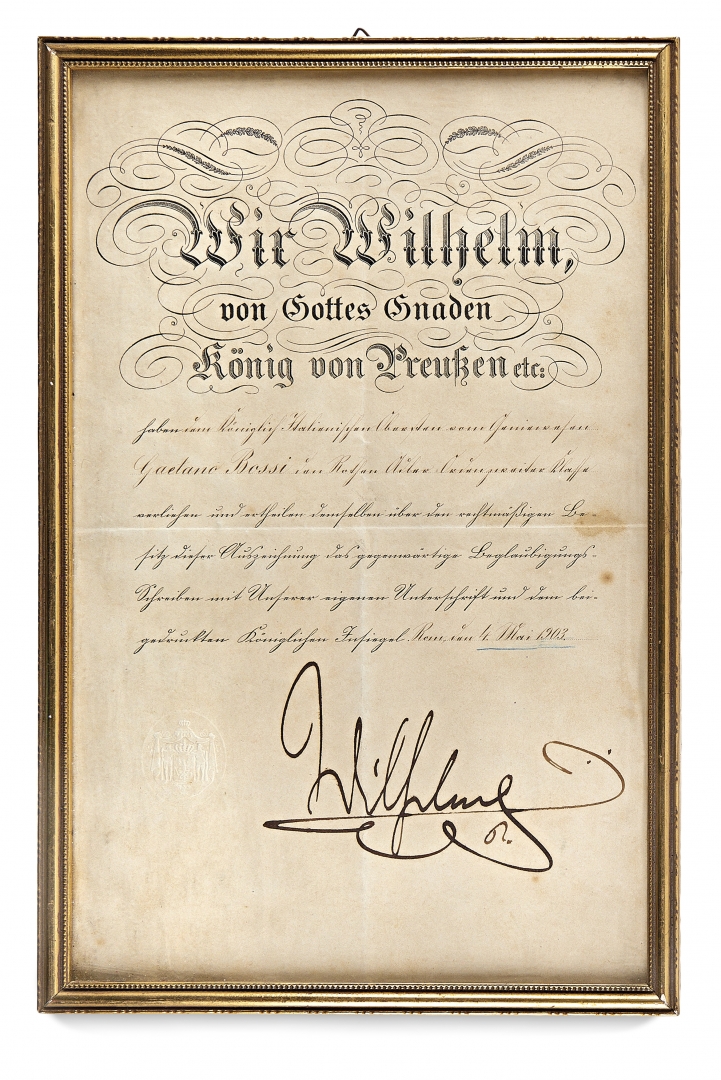 Wir Wilhelm,
von Gottes Gnaden
König von Preußen etc:
haben dem Königlich Italienischen Obersten vom Geniewesen
Gaetano Bossi den Rothen Adler Orden zweiter Klasse
verliehen und ertheilen demselben über den rechtmäßigen Be-
sitz dieser Auszeichnung das gegenwärtige Beglaubigungs-
Schreiben mit Unserer eigenen Unterschrift und dem bei-
gedruckten Königlichen Insiegel. Rom, den 4. Mai 1903.
Wilhelm
R.